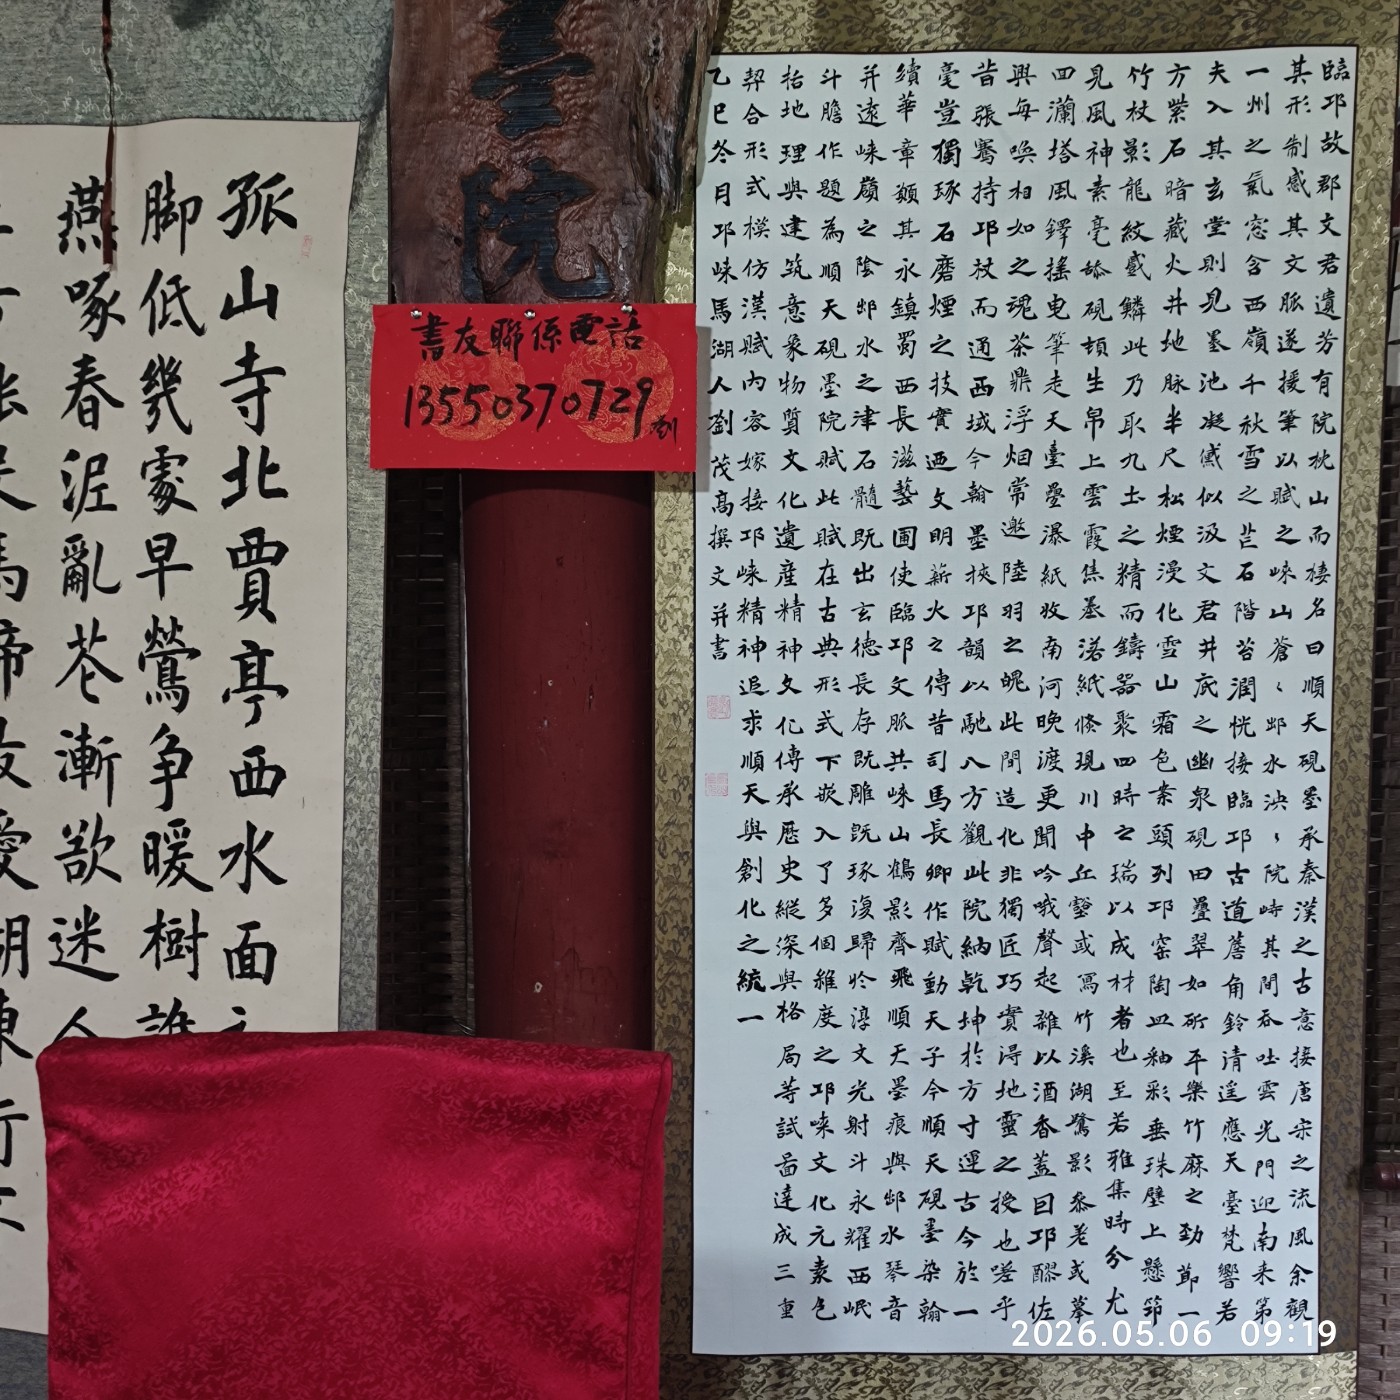 臨邛故郡文君遺芳有院枕山而棲名曰順天硯墨承秦漢之古意接唐宋之流風余觀
其形制感其文脈遂援筆以賦之崍山蒼〻邛水泱〻院峙其間吞吐雲光門迎南来第
一州之氣窓含西嶺千秋雪之芒石階苔潤恍接臨邛古道角鈴清遥應天臺梵響若
夫入其玄堂則見墨池凝黛似汲文君井底之幽泉硯田疊翠如斫平樂竹麻之勁節一
方紫石暗藏火井地脉半尺松煙漫化雪山霜色案頭列邛窑陶皿釉彩垂珠壁上懸筇
竹杖影龍紋戲鱗此乃取九土之精而鑄器聚四時之瑞以成材者也至若雅集時分尤
見風神素毫舔硯頓生帛上雲霞焦墨渃紙倏現川中丘壑或寫竹溪湖鷺影叅差或摹
四瀾塔風鐸摇曳筆走天臺疊瀑紙收南河晚渡更聞吟哦聲起雜以酒香蓋曰邛醪佐
興每喚相如之魂茶鼎浮烟常邀陸羽之魄此間造化非獨匠巧實得地靈之授也嗟乎
昔張騫持邛杖而通西域今翰墨挾邛韻以馳八方觀此院納乾坤於方寸運古今於一
毫豈獨琢石磨煙之技實迺文明薪火之傳昔司馬長卿作賦動天子今順天硯墨染翰
續華章顙其永鎮蜀西長滋藝圃使臨邛文脈共崍山鶴影齊飛順天墨痕與邛水琴音
并遠崍嶺之陰邛水之津石髓既出玄德長存既雕既琢復歸於淳文光射斗永耀西岷
斗膽作題為順天硯墨院賦此賦在古典形式下嵌入了多個維度之邛崍文化元素包
括地理與建筑意象物質文化遺産精神文化傳承歷史縱深與格局等試畐達成三重
契合形式模仿漢賦内容嫁接邛崍精神追求順天與創化之統一
乙巳冬月邛崍馬湖人劉茂高撰文并書
院
書友聯係電話
13550370729劉
孤山寺北賈亭西水面
脚低幾處早鶯争暖樹誰
燕啄春泥亂花漸欲迷人
2026.05.06 09:19